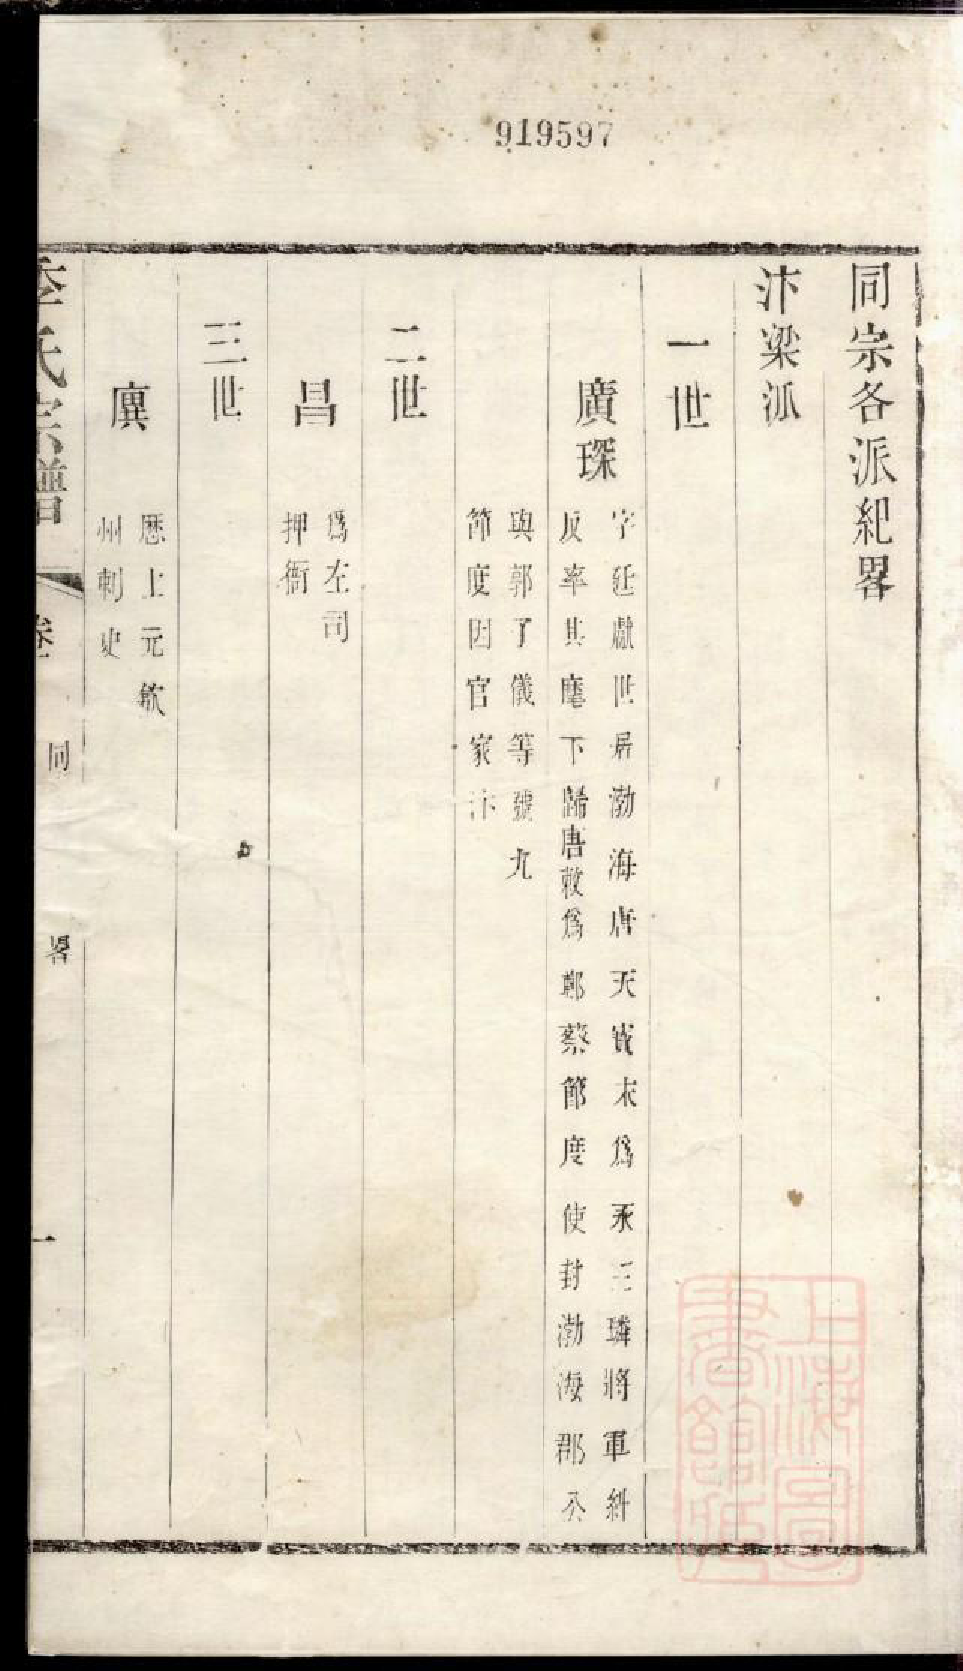 919597
同宗各派紀畧
汴梁派
一世
廣琛
字延獻世居渤海唐天寳末爲永王璘將軍糾
反率其麾下歸唐敕爲鄭蔡節度使封渤海郡公
與郭子儀等號九
節度因官家汴
二世
昌
爲左司
押衙
三世
廙
歷上元歙
州刺史
季氏宗譜
卷
同
畧
一
上海圖
書館藏